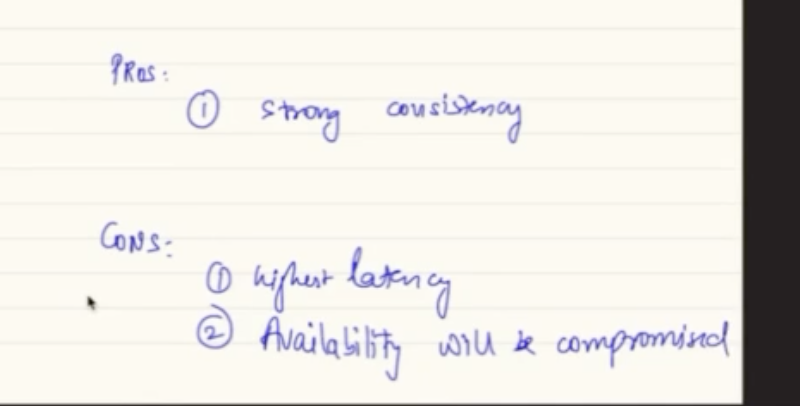 PROS:
① strong consistency
CONS:
① highest latency
② Availability will be compromised